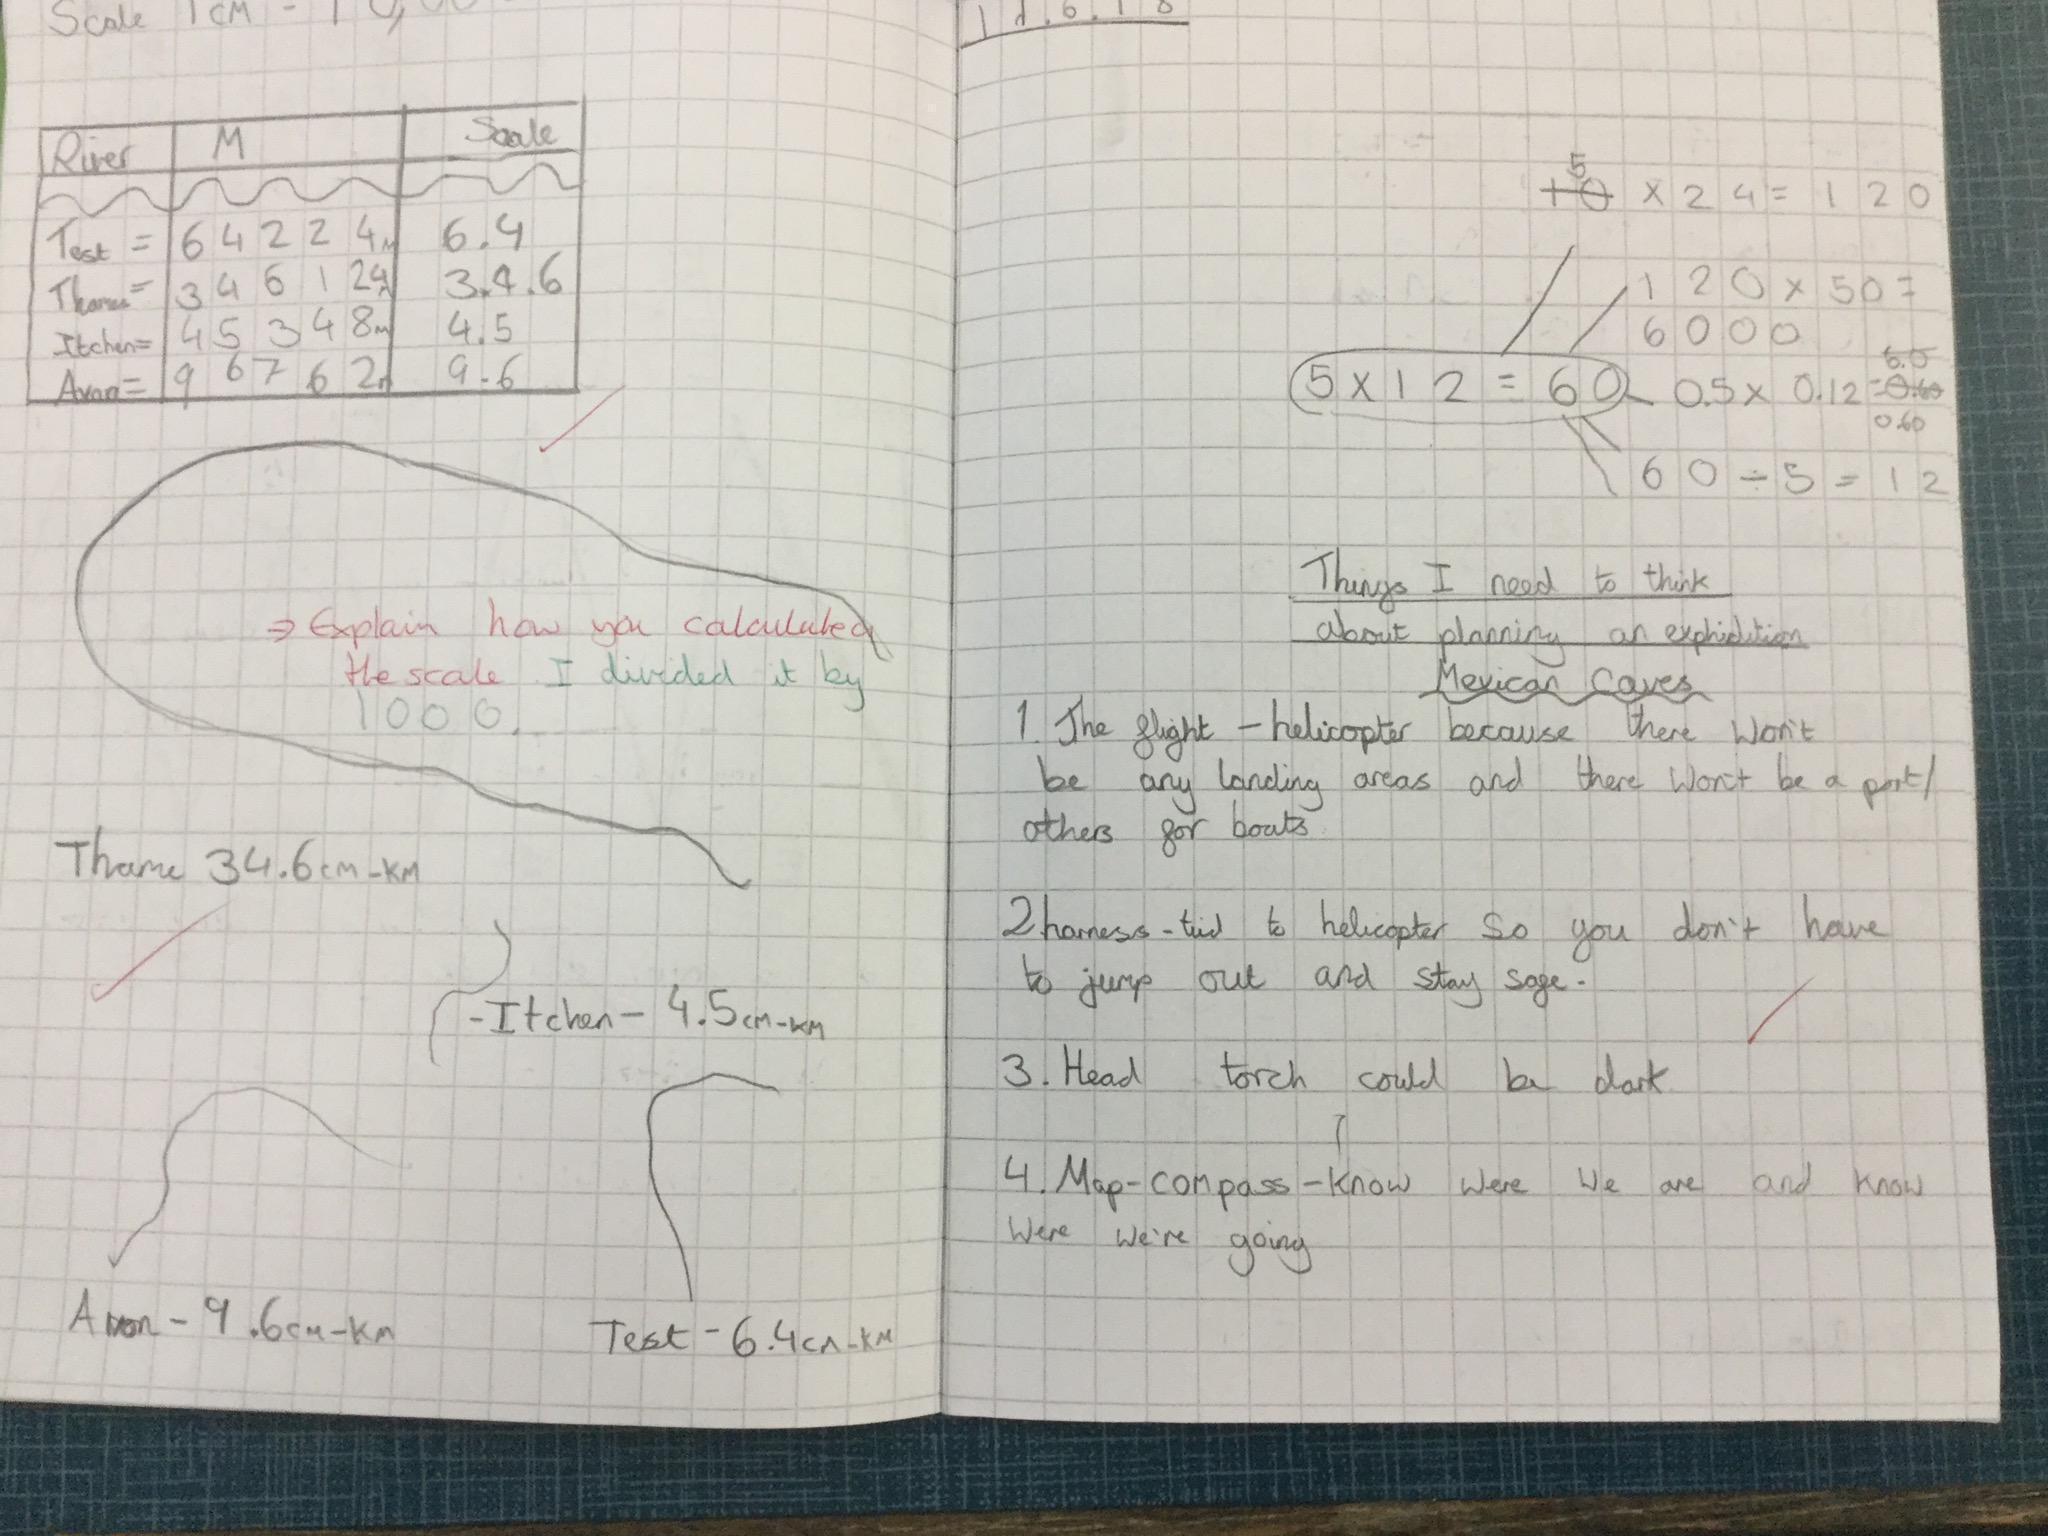 Scale 1cm - 10,00
River M Scale
Test = 64224m 6.4
Thames= 346124m 3.4.6
Itchen= 45348m 4.5
Avon= 96762m 9.6
⇒ Explain how you calculated
the scale I divided it by
1000.
Thame 34.6cm-KM
-Itchen- 4.5cm-KM
Avon - 9.6cm-KM
Test - 6.4cm-KM
5
10 x 24 = 120
120 x 50 =
6000
6.0
5 x 12 = 60 0.5 x 0.12 = 0.60
0.60
60 ÷ 5 = 12
Things I need to think
about planning an exphidition
Mexican Caves
1. The flight - helicopter because there won't
be any landing areas and there won't be a port/
others for boats
2 harness - tied to helicopter so you don't have
to jump out and stay safe.
3. Head torch could be dark
4. Map-compass - know were we are and know
were we're going